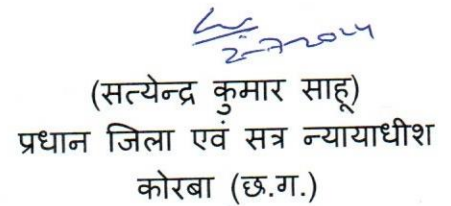 2-7-2024
(सत्येन्द्र कुमार साहू)
प्रधान जिला एवं सत्र न्यायाधीश
कोरबा (छ.ग.)